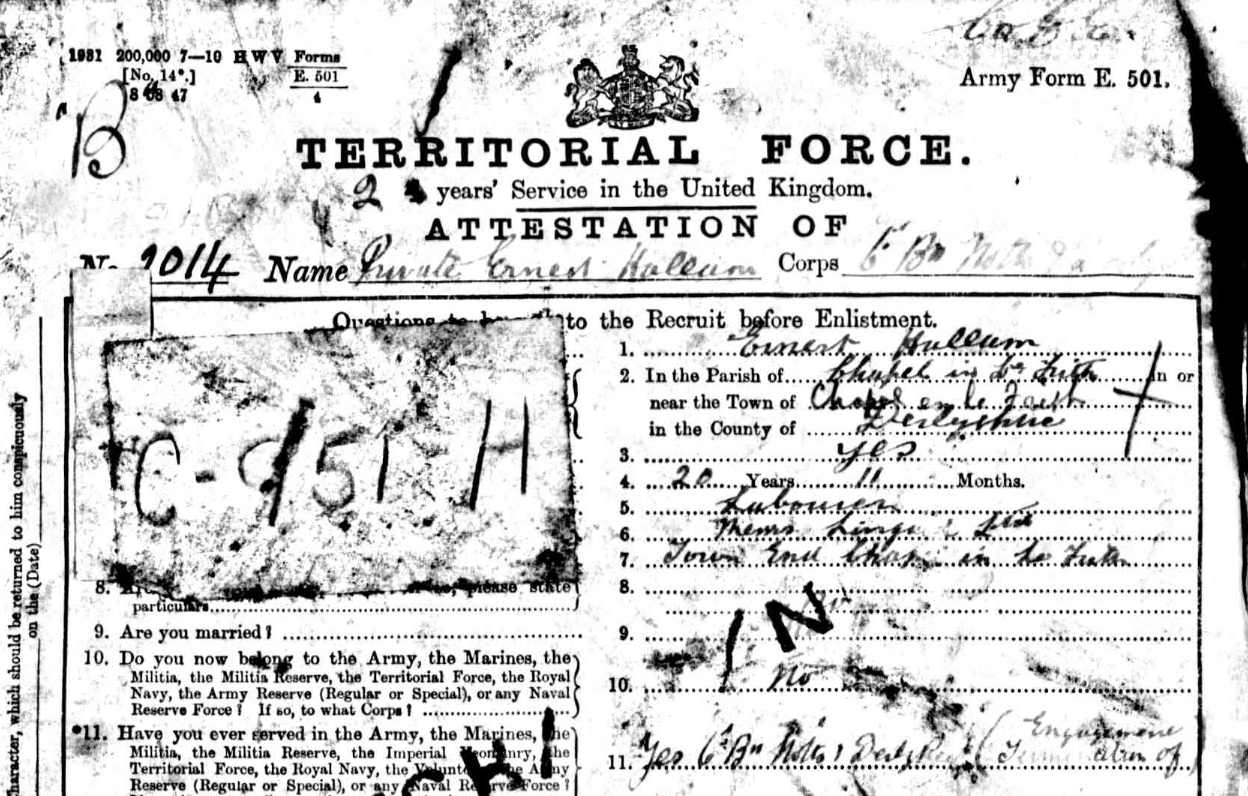 1931 200,000 7—10 H W V Forms
[No. 14*.] E. 501
8 47 4
Army Form E. 501.
B
TERRITORIAL FORCE.
2 years' Service in the United Kingdom.
ATTESTATION OF
No. 1014 Name Private Ernest Hallum Corps 6th Bn Notts
to the Recruit before Enlistment.
1. Ernest Hallum
2. In the Parish of Chapel in le Frith in or
near the Town of Chapel en le Frith
in the County of Derbyshire
3. Yes
4. 20 Years 11 Months.
5. Labourer
6. Messrs
7. Town End Chapel in le Frith
C - 9/51 H
8. please state
particulars
8.
IN
9. Are you married?
9.
10. Do you now belong to the Army, the Marines, the
Militia, the Militia Reserve, the Territorial Force, the Royal
Navy, the Army Reserve (Regular or Special), or any Naval
Reserve Force? If so, to what Corps?
10. No
*11. Have you ever served in the Army, the Marines, the
Militia, the Militia Reserve, the Imperial Yeomanry, the
Territorial Force, the Royal Navy, the Army
Reserve (Regular or Special), or any Naval Reserve Force?
11. Yes 6th Bn Notts & Derby (Termination of
Engagement)
character, which should be returned to him conspicuously
on the (Date)